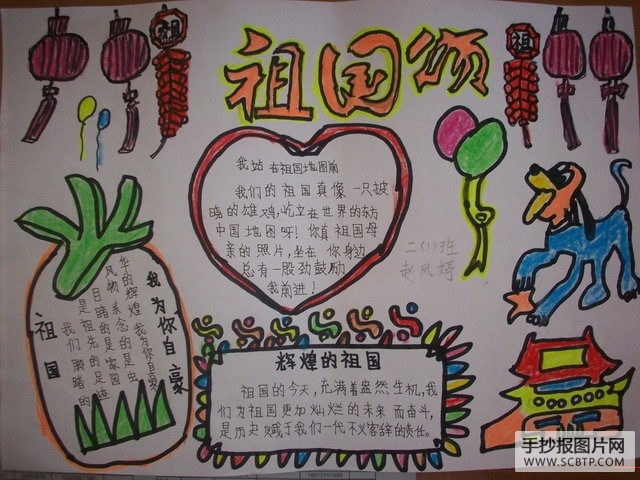 祖国颂
祖
祖
我站在祖国地图前
我们的祖国真像一只披
晓的雄鸡,屹立在世界的东方
中国地图呀!你真祖国母
亲的照片,坐在你身边
总有一股劲鼓励
我前进!
二(1)班
赵凤嫣
祖国
我为你自豪
华的辉煌我为你自豪
风物系念的是虫
目睹的是家园
是祖先的足迹
我们踏的
辉煌的祖国
祖国的今天,充满着盎然生机,我
们为祖国更加灿烂的未来而奋斗,
是历史赋于我们一代不义客辞的责任。
手抄报图片网
WWW.SCBTP.COM